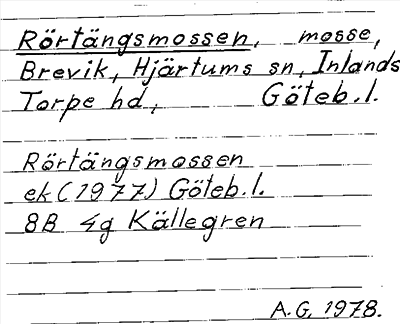 Rörtängsmossen, mosse,
Brevik, Hjärtums sn, Inlands
Torpe hd, Göteb.l.
Rörtängsmossen
ek (1977) Göteb.l.
8B 4g Källegren
A.G. 1978.